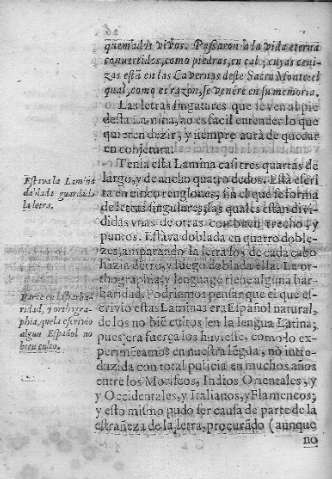 quemados vivos. Passaron a la vida eterna
convertidos, como piedras, en cal; cuyas ceni-
zas están en las Cavernas deste Sacro Monte el
qual, como es razon, se venere en su memoria.
Las letras singulares que se ven al pie
desta Lamina, no es facil entender lo que
quieren dezir, y siempre avrá de quedar
en conjetura.
Tenia esta Lamina casi tres quartas de
largo, y de ancho quatro dedos. Está escri-
ta en cinco renglones, sin el que se forma
de letras singulares, las quales están divi-
didas unas de otras con buen trecho, y
puntos. Estava doblada en quatro doble-
zes, amparando la letra los de cada cabo
hazia dentro, y luego doblada ella. La or-
thographia, y lenguage tiene alguna bar-
baridad. Podriamos pensar que el que es-
crivio estas Laminas era Español natural,
de los no bié cultos en la lengua Latina;
pues era fuerça los huviesse, como lo ex-
perimétamos en nuestra légua, no intro-
duzida con total pulicia en muchos años
entre los Moriscos, Indios Orientales, y
y Occidentales, y Italianos, y Flamencos;
y esto mismo pudo ser causa de parte de la
estrañeza de la letra, procurādo (aunque
no
Estava la Lamina
doblada guardādo
la letra.
Parte en la barba-
ridad, y orthogra-
phia, que la escrivio
algun Español no
bien culto.